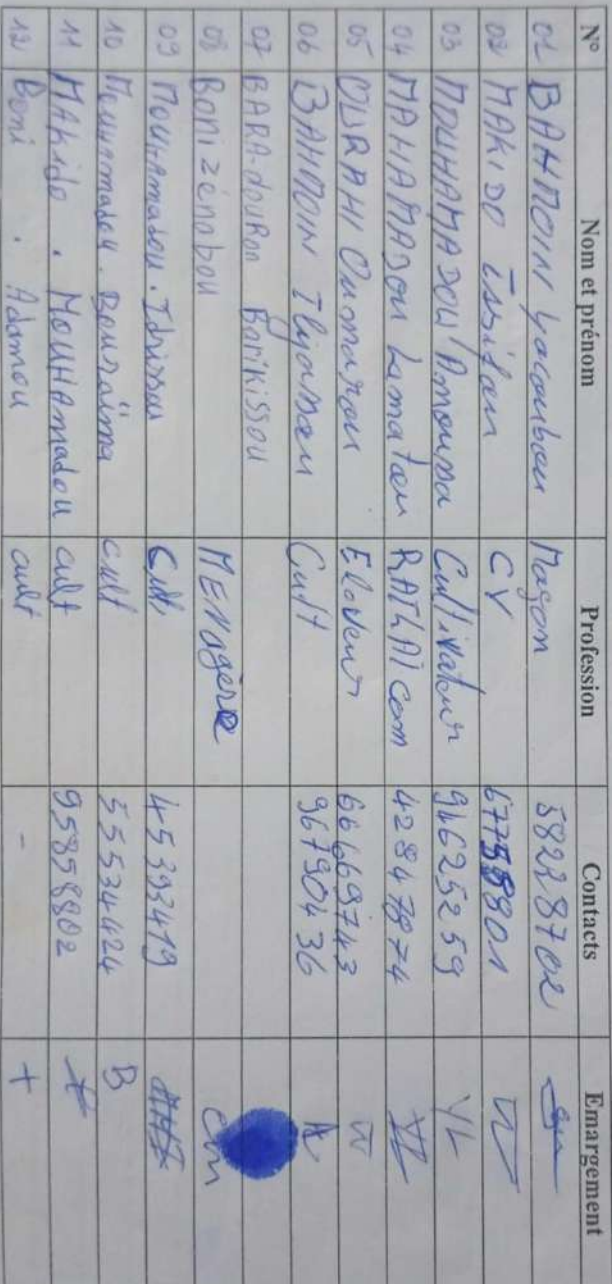 N° Nom et prénom Profession Contacts Emargement
01 BAHNOIN Yacoubou Maçon 58228702
02 MAKIDO Issifou CV 67758801
03 MOUHAMADOU Amoussa Cultivateur 91625259
04 MAHAMADOU Lamatou 42847874
05 OURAHI Oumarou Eleveur 66669743
06 BAHNOIN Iliyassou Cult 96790436
07 BARA-douRou Barikissou
08 Boni zénabou MENagère
09 MouHAmadou. Idrissou Cult 45393419
10 Mouhamadou. Bouraïma cult 55534424 B
11 MAkido. MouHAmadou cult 95858802
12 Boni. Adamou cult - +